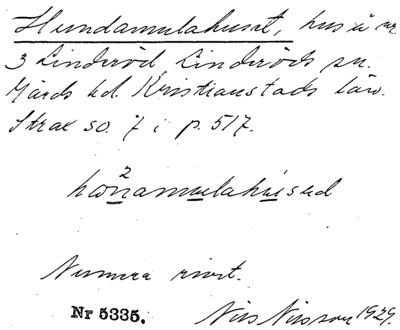 Hundamulahuset, hus å nr
3 Linderöd Linderöds sn.
Gärds hd. Kristianstads län.
Strax so. 7 i p. 517.
2
Numera rivet.
Nr 5335. Nils Nilsson 1929.